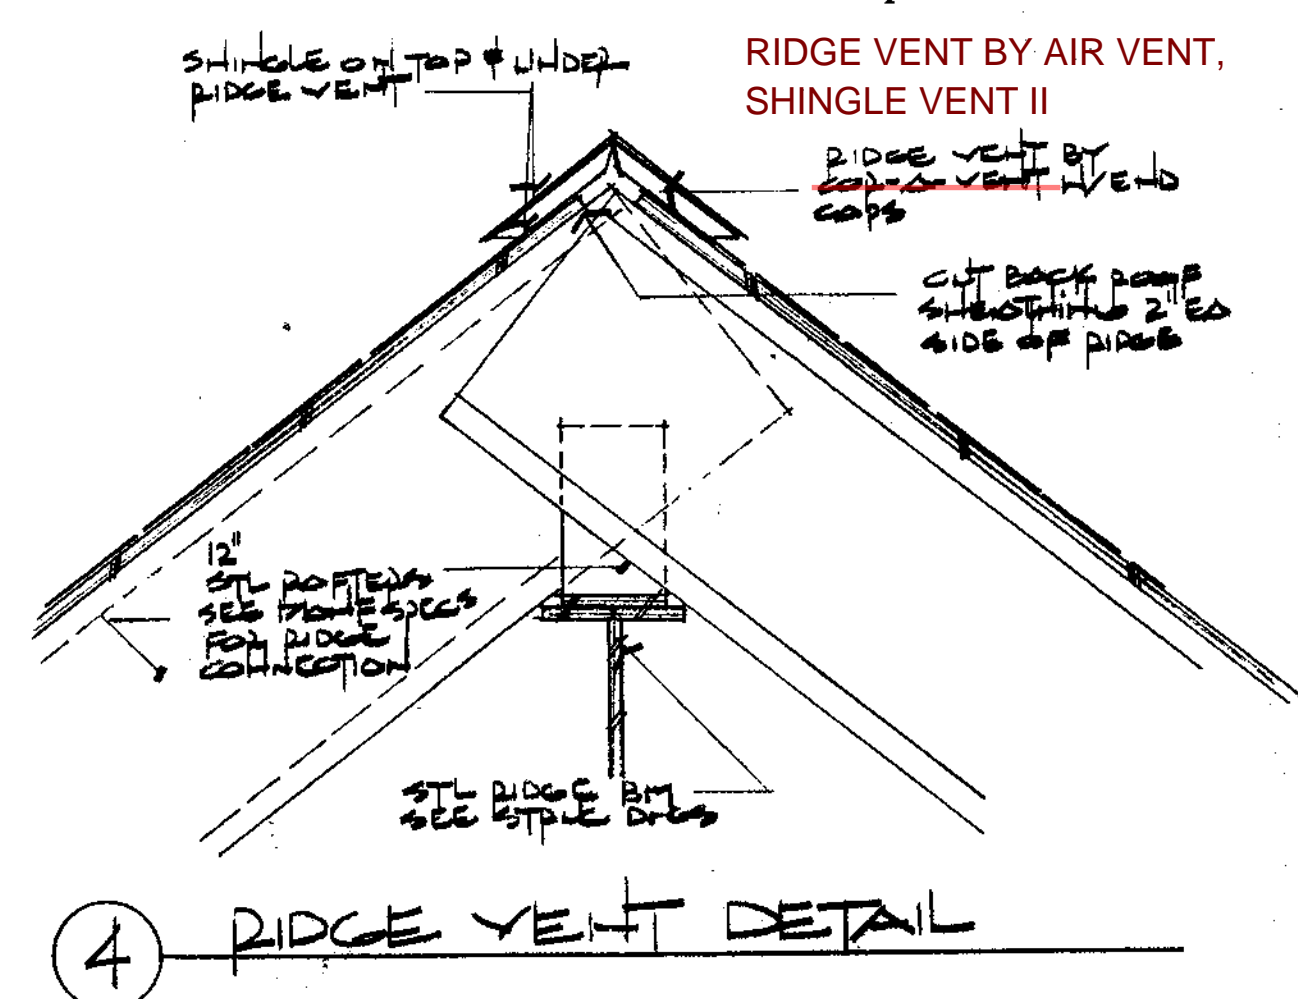 SHINGLE ON TOP & UNDER
RIDGE VENT
RIDGE VENT BY AIR VENT,
SHINGLE VENT II
RIDGE VENT BY
COR-A-VENT W/ END
CAPS
CUT BACK ROOF
SHEATHING 2" EA
SIDE OF RIDGE
12"
STL RAFTERS
SEE MANF SPECS
FOR RIDGE
CONNECTION
STL RIDGE BM
SEE STRUC DWGS
4 RIDGE VENT DETAIL